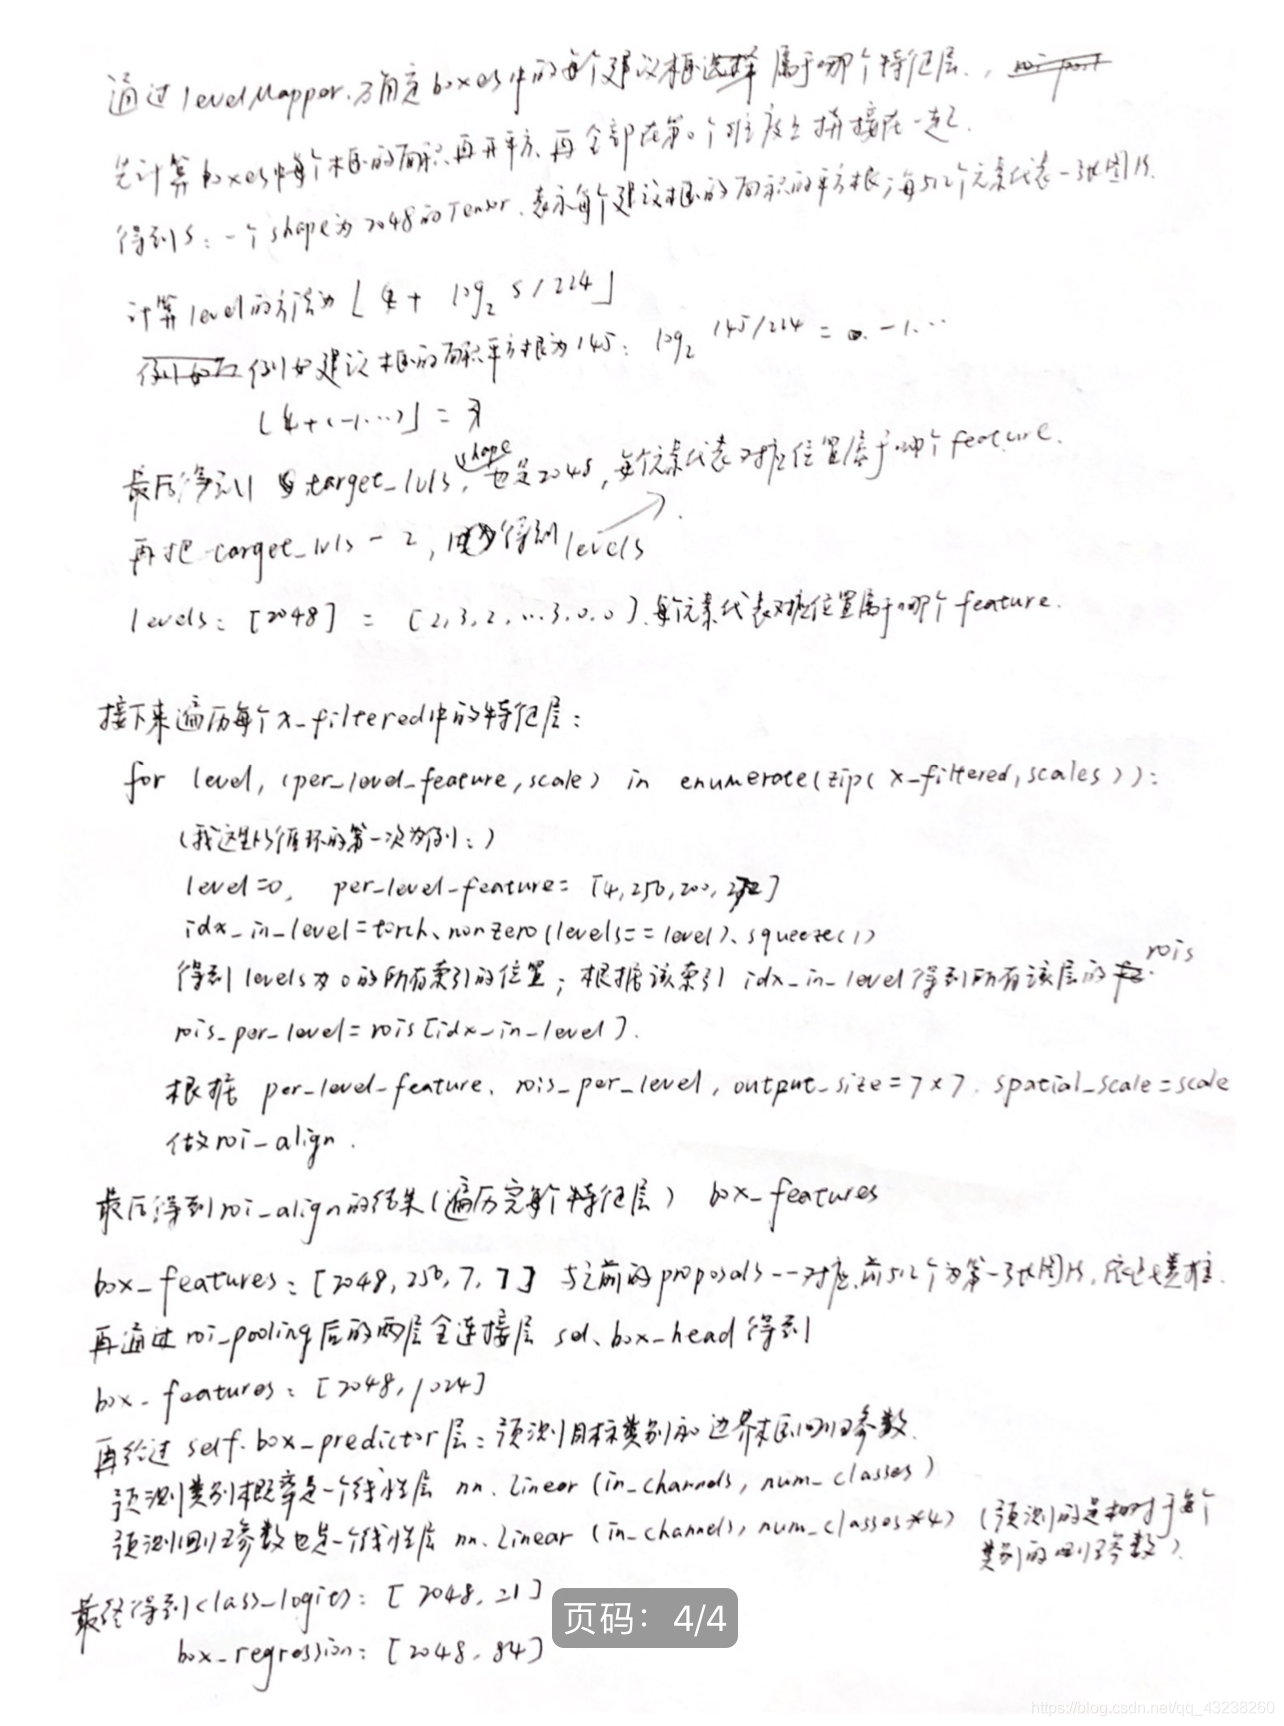 通过levelMapper.确定boxes中的每个建议框属于哪个特征层.,
先计算boxes中每个框的面积再开平方、再全部在第0个维度上拼接在一起.
得到S:一个shape为2048的Tensor.表示每个建议框的面积的平方根;每512个元素代表一张图片.
计算level的方法为 ⌊4 + log₂ S/224⌋
例如建议框的面积平方根为145: log₂ 145/224 = -1...
⌊4+(-1...)⌋ =
最后得到target_lvls, shape也是2048,每个元素代表对应位置属于哪个feature.
再把target_lvls - 2, 得到levels
levels: [2048] = [2,3,2,...3,0,0].每个元素代表对应位置属于哪个feature.
接下来遍历每个x_filtered中的特征层:
for level, (per_level_feature, scale) in enumerate(zip(x_filtered, scales)):
(我这里以循环的第一次为例:)
level=0, per_level_feature= [4,256,200,272]
idx_in_level=torch.nonzero(levels==level).squeeze(1)
得到levels为0的所有索引的位置; 根据该索引 idx_in_level得到所有该层的rois
rois_per_level=rois[idx_in_level].
根据 per_level_feature、rois_per_level, output_size=7×7. spatial_scale=scale
做roi_align.
最后得到roi_align的结果(遍历完每个特征层) box_features
box_features: [2048,256,7,7] 与之前的proposals一一对应.前512个为第一张图片,依此类推.
再通过roi_pooling后的两层全连接层 sel.box_head得到
box_features: [2048,1024]
再经过self.box_predictor层:预测目标类别和边界框回归参数.
预测类别概率是一个线性层 nn.Linear (in_channels, num_classes)
预测回归参数也是一个线性层 nn.Linear (in_channels, num_classes*4) (预测的是相对于每个
类别的回归参数).
最终得到class_logits: [2048,21]
box_regression: [2048,84]
页码: 4/4
https://blog.csdn.net/qq_43238260